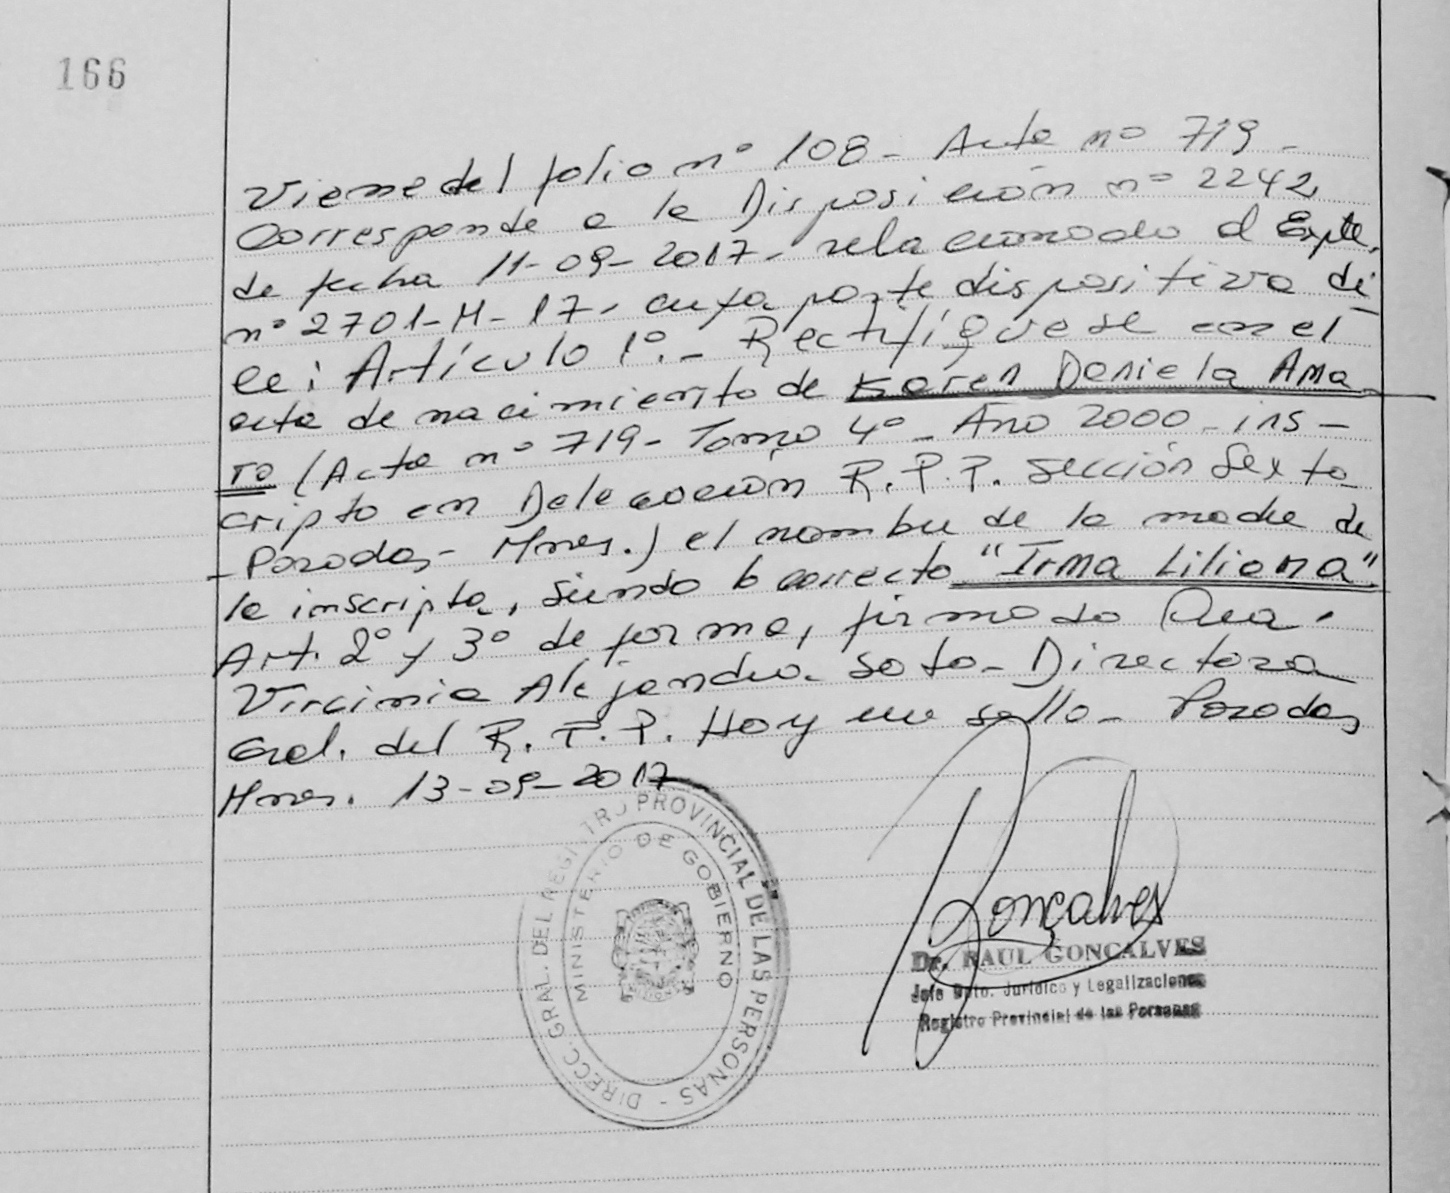 166
Viene del folio nº 108 - Acta nº 719 -
Corresponde a la Disposición nº 2242
de fecha 11-09-2017 - relacionado al Expte.
nº 2701-H-17, cuya parte dispositiva di-
ce: Artículo 1º.- Rectifíquese en el
acta de nacimiento de Karen Daniela Ama
ro (Acta nº 719 - Tomo 4º - Año 2000 - ins-
cripto en Delegación R.P.P. Sección Sexta
- Posadas - Mnes.) el nombre de la madre de
la inscripta, siendo lo correcto "Irma Liliana"
Art. 2º y 3º de forma, firmado Dra.
Virginia Alejandra Soto - Directora
Gral. del R.P.P. Hay un sello - Posadas
Mnes. 13-09-2017
DIRECC. GRAL. DEL REGISTRO PROVINCIAL DE LAS PERSONAS -
MINISTERIO DE GOBIERNO
Gonçalves
Dr. RAUL GONCALVES
Jefe Dpto. Jurídico y Legalizaciones
Registro Provincial de las Personas